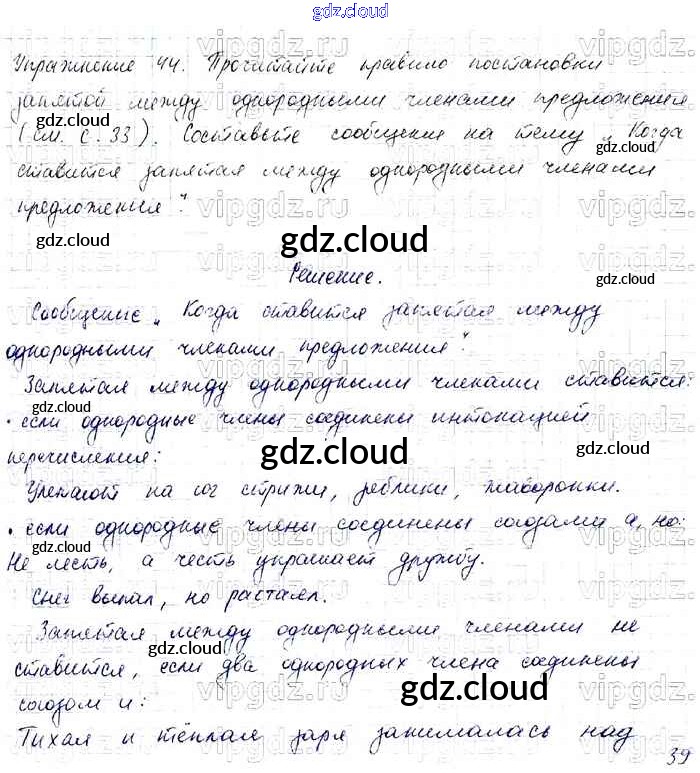 gdz.cloud
Упражнение 44. Прочитайте правило постановки
запятой между однородными членами предложения
(см. с. 33). Составьте сообщение на тему „Когда
ставится запятая между однородными членами
предложения".
Решение.
Сообщение „Когда ставится запятая между
однородными членами предложения".
Запятая между однородными членами ставится:
• если однородные члены соединены интонацией
перечисления:
Улетают на юг стрижи, зяблики, жаворонки.
• если однородные члены соединены союзами а, но:
Не лесть, а честь украшает дружбу.
Снег выпал, но растаял.
Запятая между однородными членами не
ставится, если два однородных члена соединены
союзом и:
Тихая и тёплая заря занималась над
39